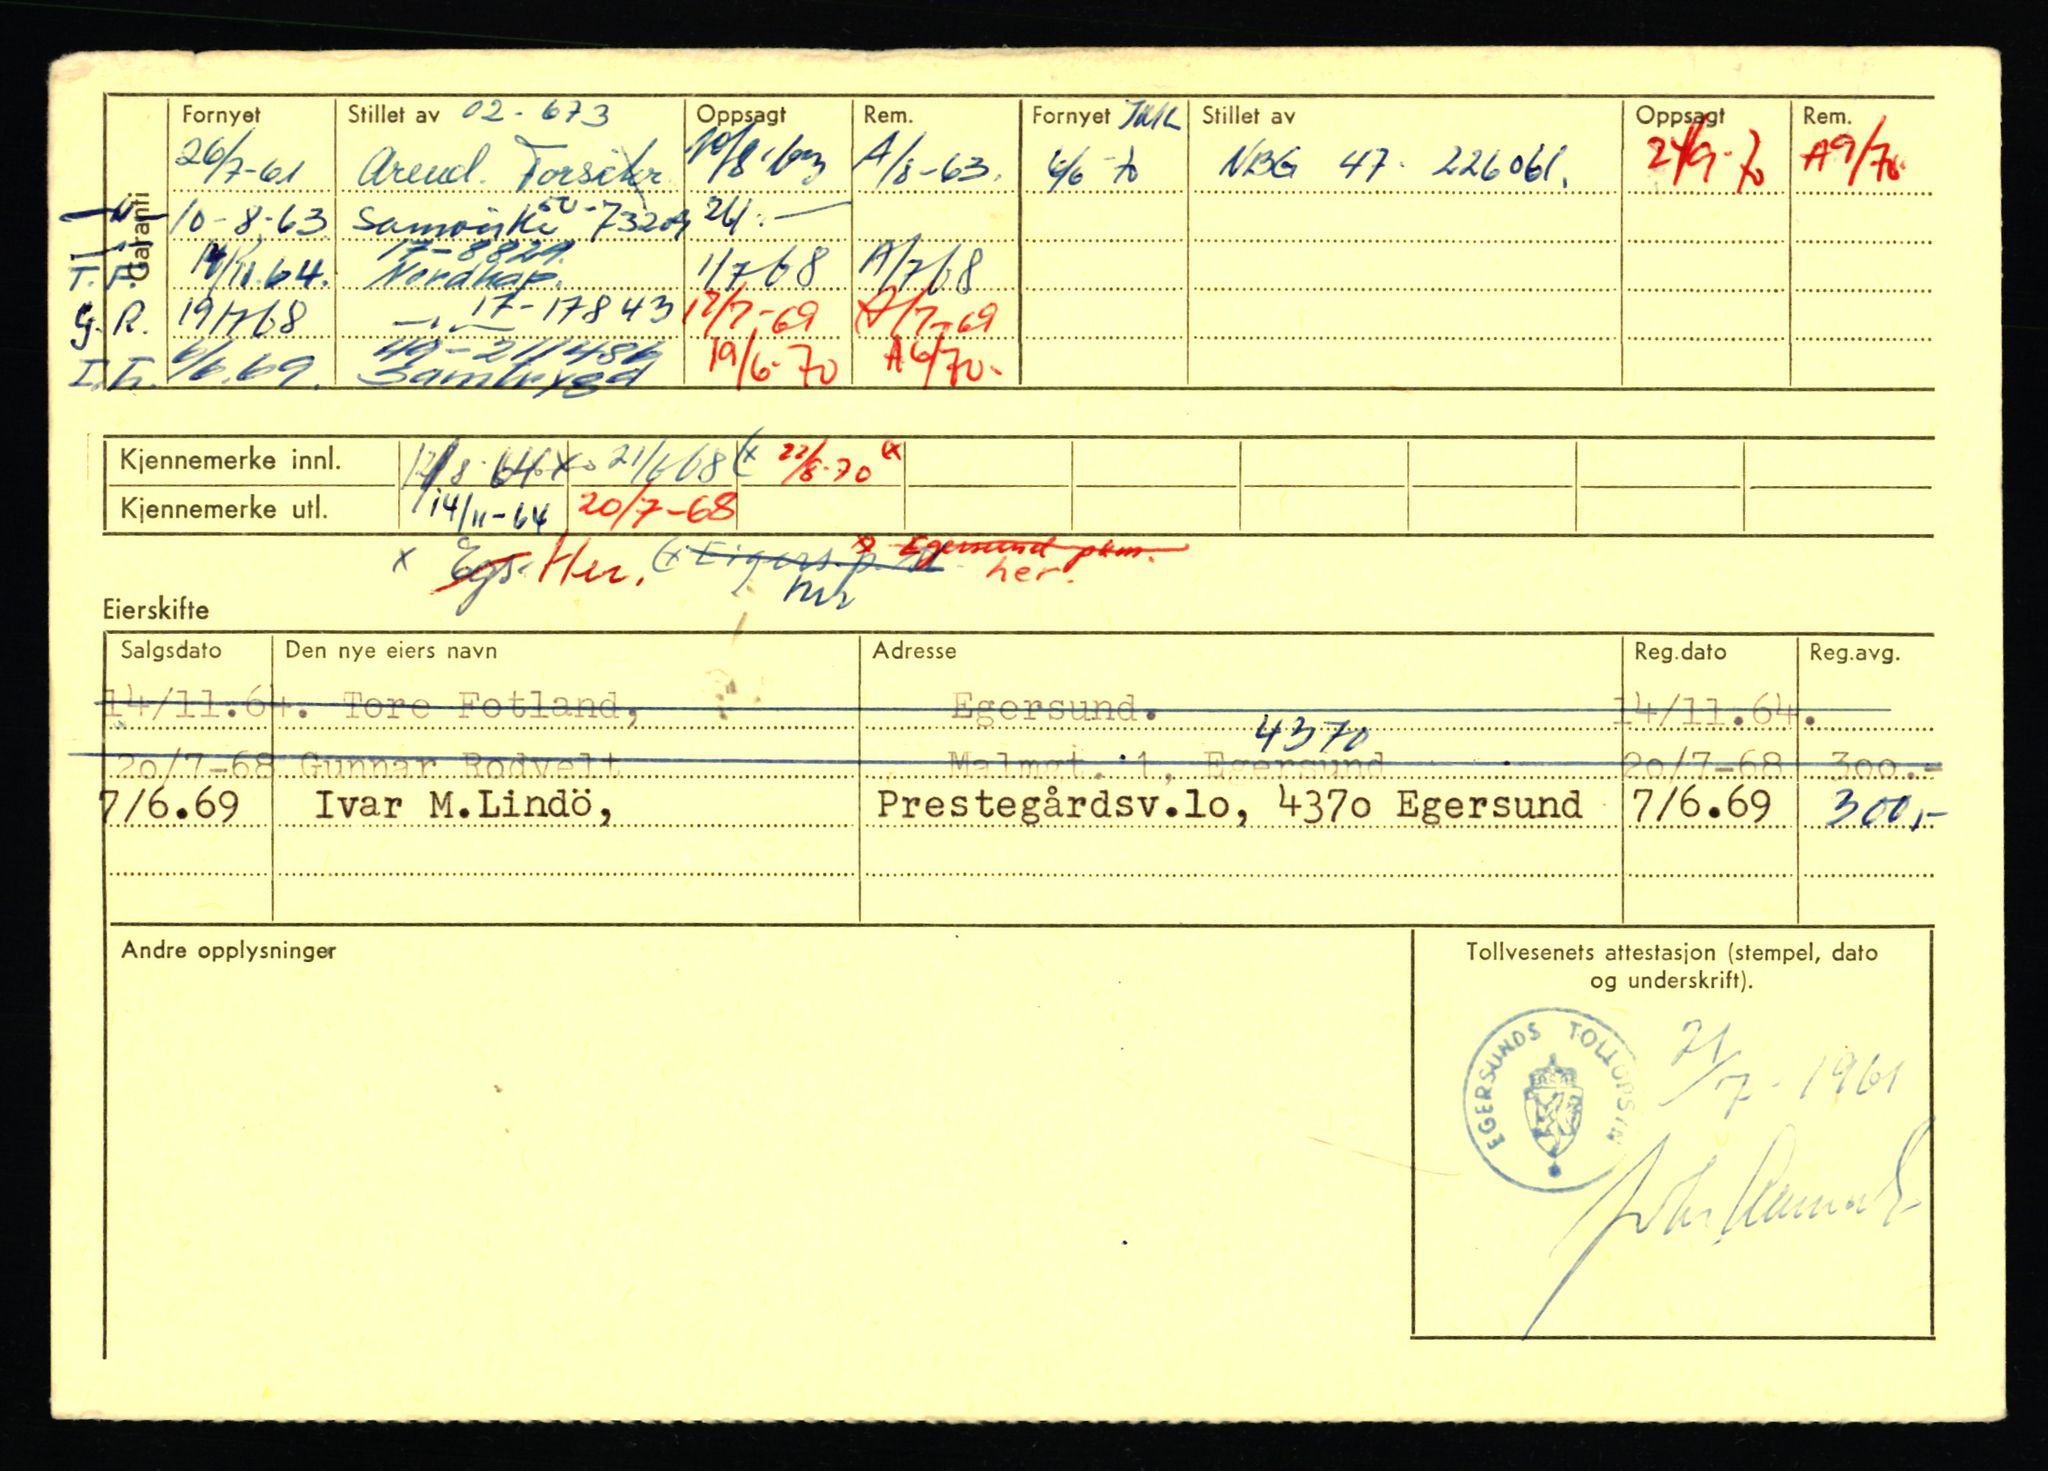 Garanti
Fornyet Stillet av 02-673 Oppsagt Rem. Fornyet Stillet av Oppsagt Rem.
26/7-61 Arend. A/8-63. 4/6-70 NBG 47- 226061. 24/9-70 A9/70.
10-8-63
17-8829.
T. F. 14/11.64. Nordkap. 1/7 68 A/7 68
G. R. 19/7 68 17-17843 12/7-69 A/7-69
49-211486
I. L. 6/6.69. Samtrygd 19/6-70 A6/70-
Kjennemerke innl. 21/6 68 (x 22/8-70 (x
Kjennemerke utl. 14/11-64 20/7-68
x Egs. Her. (x Eigers. p. Egersund pkm.
her.
Eierskifte
Salgsdato Den nye eiers navn Adresse Reg.dato Reg.avg.
14/11.64. Tore Fotland, Egersund. 14/11.64.
4370
20/7-68 Gunnar Rodvelt Malmgt. 1, Egersund 20/7-68 300.-
7/6.69 Ivar M.Lindö, Prestegårdsv.1o, 437o Egersund 7/6.69 300,-
Andre opplysninger
Tollvesenets attestasjon (stempel, dato
og underskrift).
EGERSUNDS TOLLOPSYN
21/7-1961